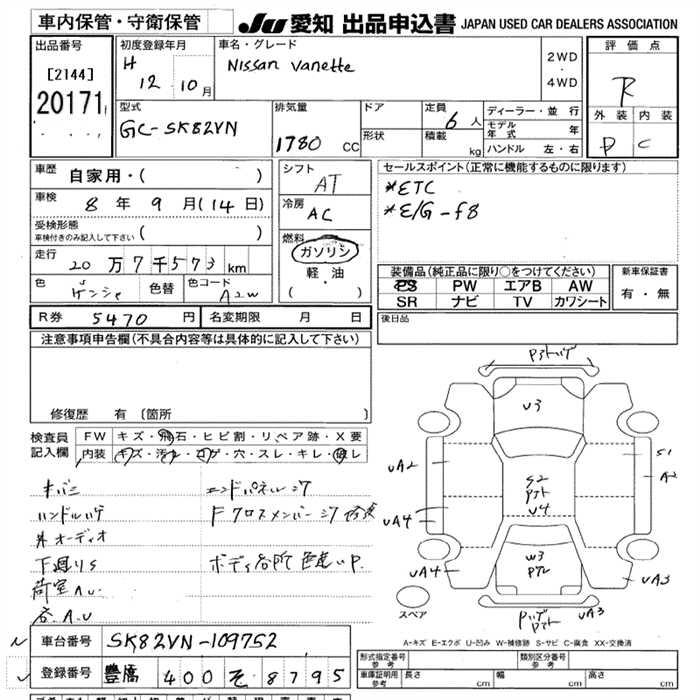 車内保管・守衛保管
JU 愛知 出品申込書 JAPAN USED CAR DEALERS ASSOCIATION
出品番号
[2144]
20171
初度登録年月
H 12 10月
車名・グレード
Nissan Vanette
2WD
・
4WD
評価点
R
外装 内装
D C
型式
GC-SK82VN
排気量
1780 cc
ドア
形状
定員
6人
積載
kg
ディーラー・並行
モデル年式 年
ハンドル 左・右
車歴
自家用・( )
車検
8年9月(14日)
受検形態
車検付きのみ記入して下さい ( )
走行
20万7千573km
色
ゲンシャ
色替
色コード
A2W
シフト
AT
冷房
AC
燃料
ガソリン
軽油
( ・ )
セールスポイント(正常に機能するものに限ります)
*ETC
*E/G-F8
装備品(純正品に限り○をつけてください)
PS PW エアB AW
SR ナビ TV カワシート
新車保証書
有・無
後日品
R券 5470円
名変期限 月 日
注意事項申告欄(不具合内容等は具体的に記入して下さい)
修復歴 有 〔箇所 〕
検査員
記入欄
FW キズ・飛石・ヒビ割・リペア跡・X要
内装 キズ・汚れ・コゲ・穴・スレ・キレ・破レ
キバミ
ハンドルハゲ
外オーディオ
下廻りS
荷室AU
エンドパネルシワ
Fクロスメンバーシワ
ボディ各所色違いP.
U3
UA2
UA4
UA4
S1
A2
S2
U4
W3
UA3
UA3
スペア
A-キズ E-エクボ U-凹み W-補修跡 S-サビ C-腐食 XX-交換済
車台番号 SK82VN-109752
登録番号 豊橋 400 そ 8795
形式指定番号
参考
類別区分番号
参考
車庫証明用
参考
長さ cm
幅 cm
高さ cm